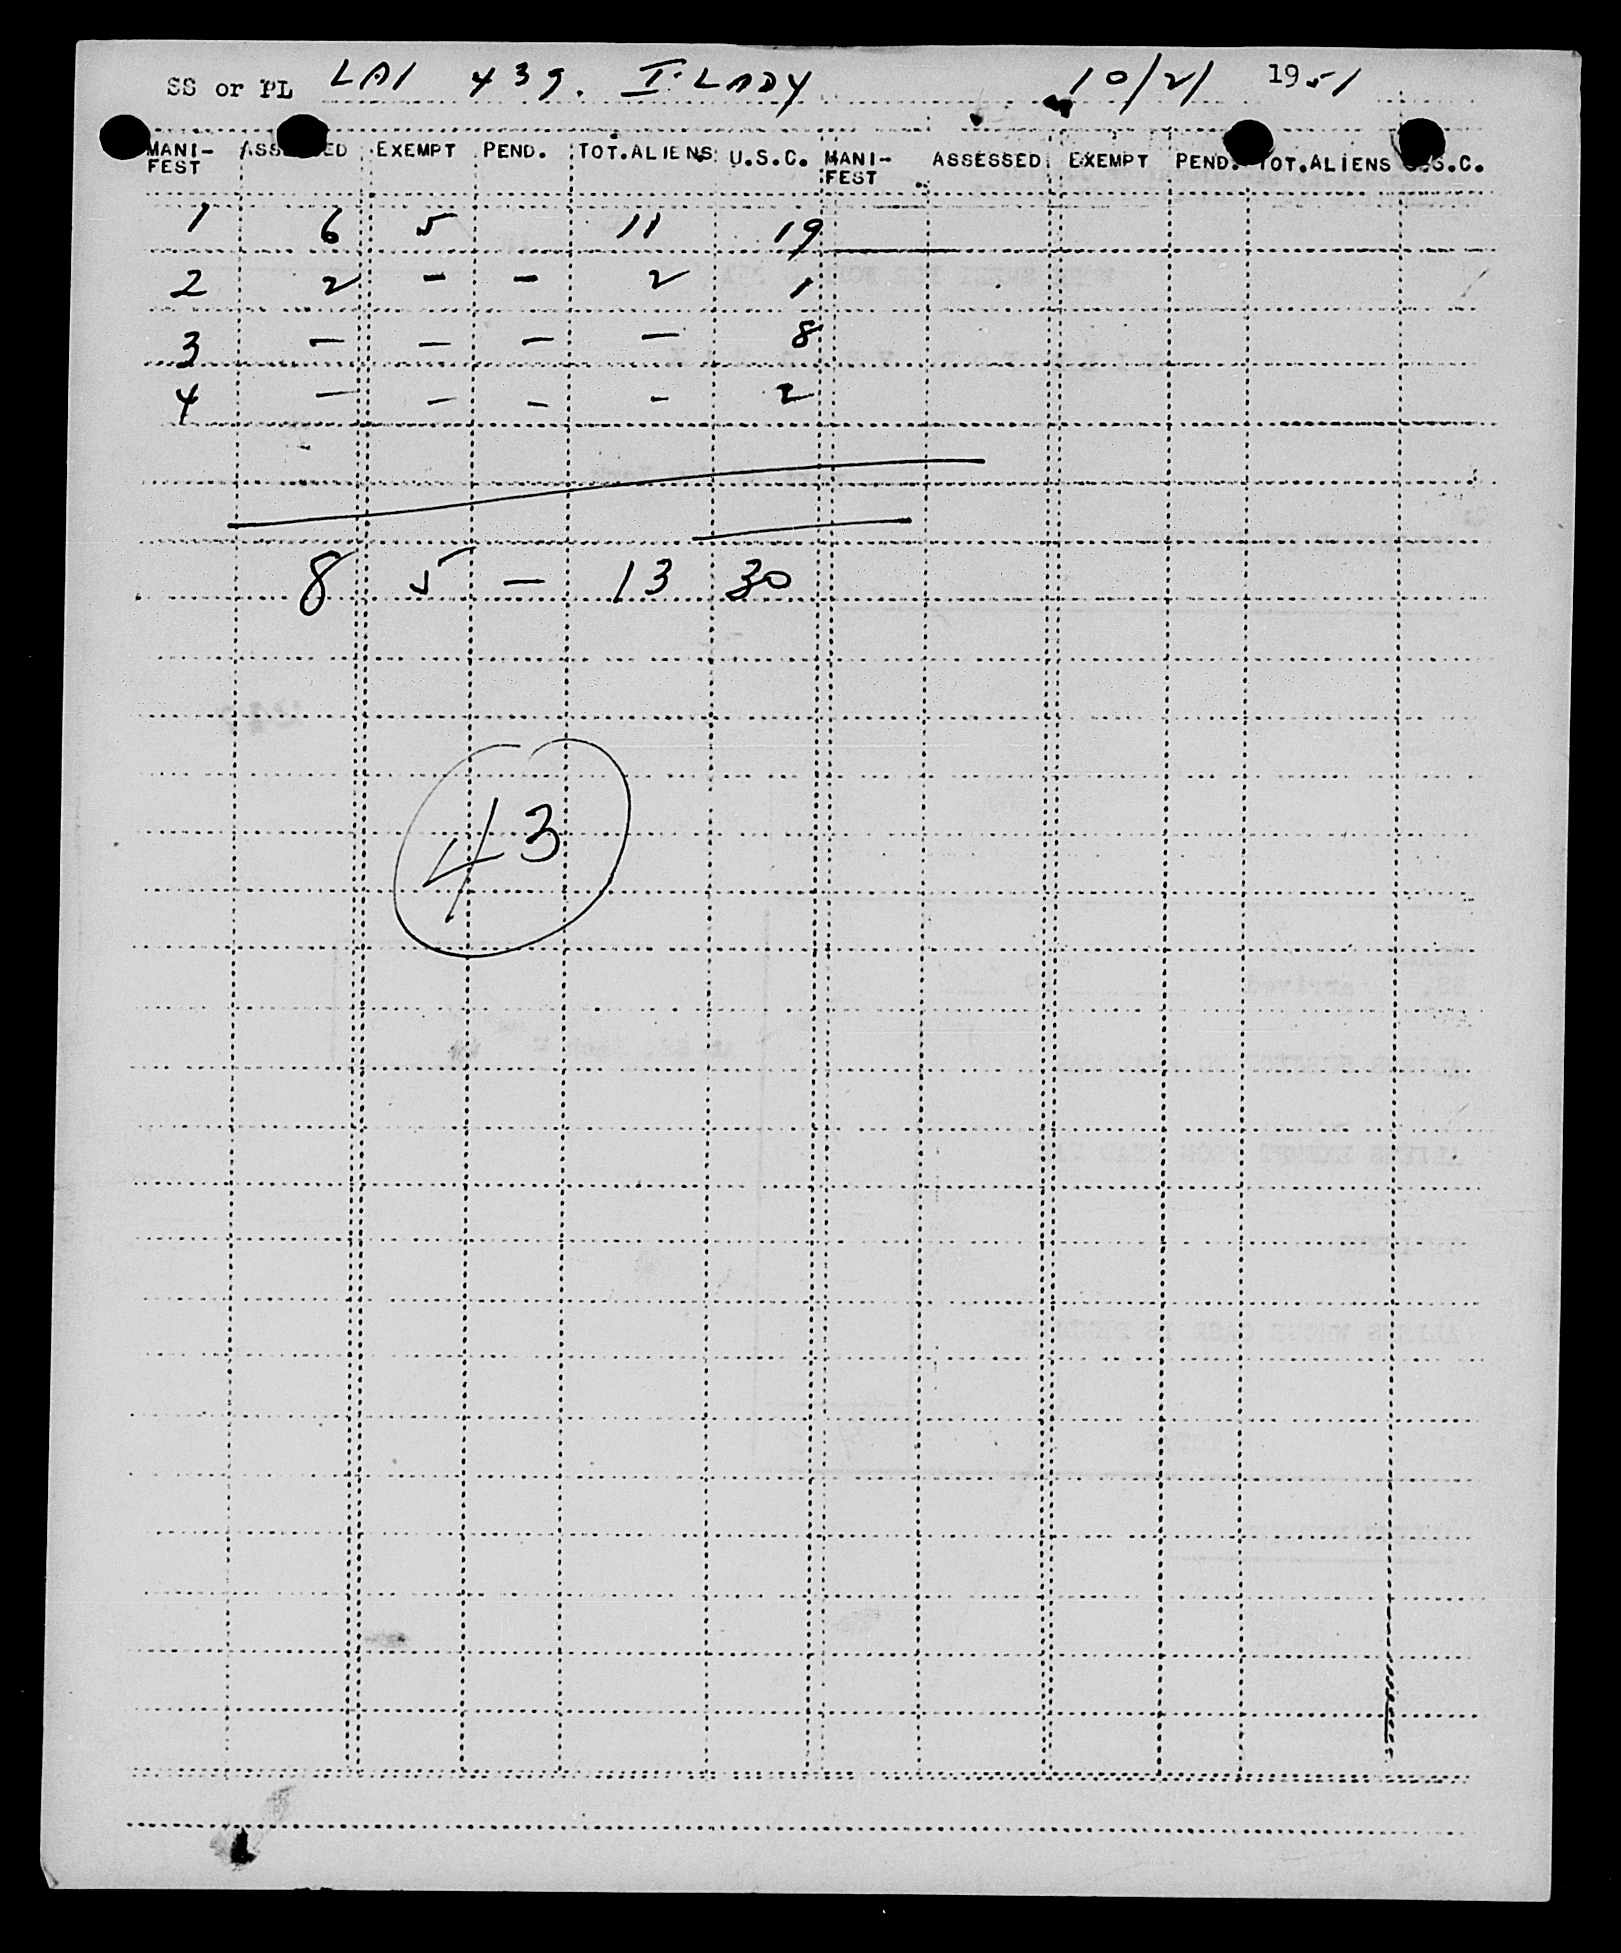 SS or PL LAI 439. I-LADY 10/21 1951
MANI-FEST ASSESSED EXEMPT PEND. TOT.ALIENS U.S.C. MANI-FEST ASSESSED EXEMPT PEND. TOT.ALIENS U.S.C.
1 6 5 11 19
2 2 - - 2 1
3 - - - - 8
4 - - - - 2
8 5 - 13 30
43